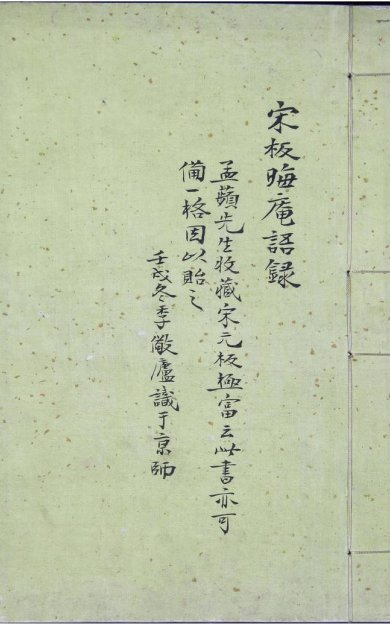 宋板晦庵語録
孟蘋先生收藏宋元板極富云此書亦可
備一格因以貽之
壬戌冬季儆廬識于京師